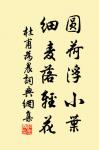 圆荷浮小叶
细麦落轻花
杜甫为农词典网集